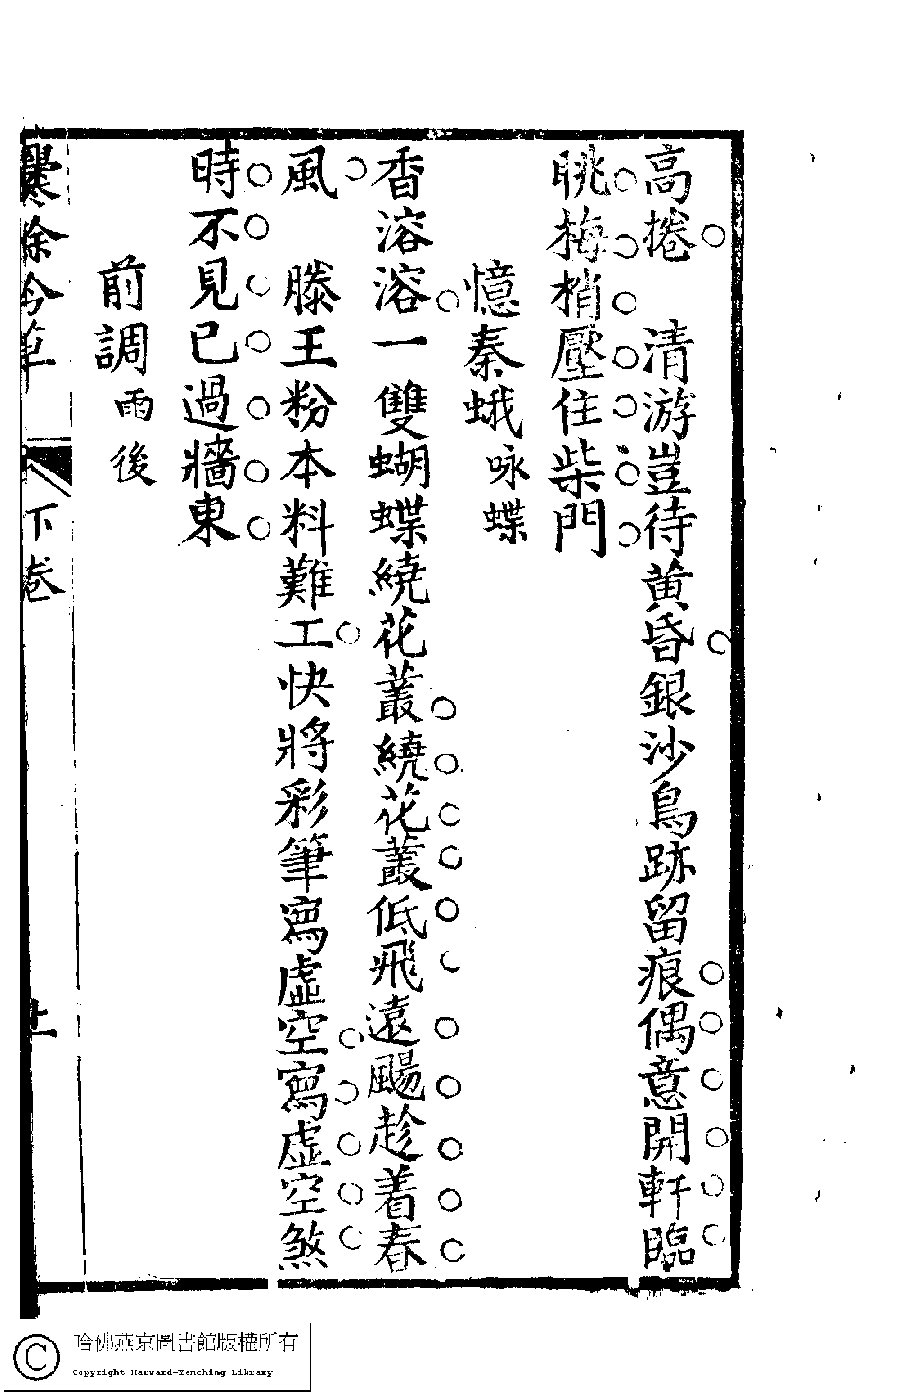 高捲　清游豈待黃昏銀沙鳥跡留痕偶意開軒臨
眺梅梢壓住柴門
憶秦蛾咏蝶
香溶溶一雙蝴蝶繞花叢繞花叢低飛遠颺趁着春
風　滕王粉本料難工快將彩筆寫虛空寫虛空煞
時不見已過牆東
前調雨後
爨餘吟草
下卷
哈佛燕京圖書館版權所有
Copyright Harvard-Yenching Library